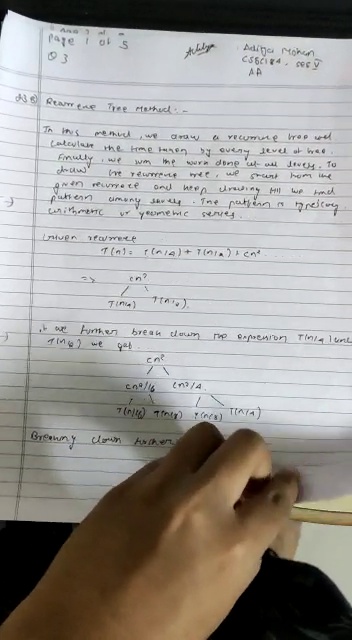 Page 1 of 5
Aditya Mohan
Q 3
CSBC184. SEC V
AA
Recurrence Tree Method:-
In this method, we draw a recurrence tree and
calculate the time taken by every level of tree.
Finally, we sum the work done at all levels. To
draw the recurrence tree, we start from the
given recurrence and keep drawing till we find
pattern among levels. The pattern is typically
arithmetic or geometric series.
Given recurrence
T(n) = T(n/4) + T(n/2) + cn²
=> cn²
T(n/4) T(n/2)
we further break down the expression T(n/4) and
T(n/2) we get
cn²
cn²/16 cn²/4
T(n/16) T(n/8) T(n/8) T(n/4)
Breaking down further